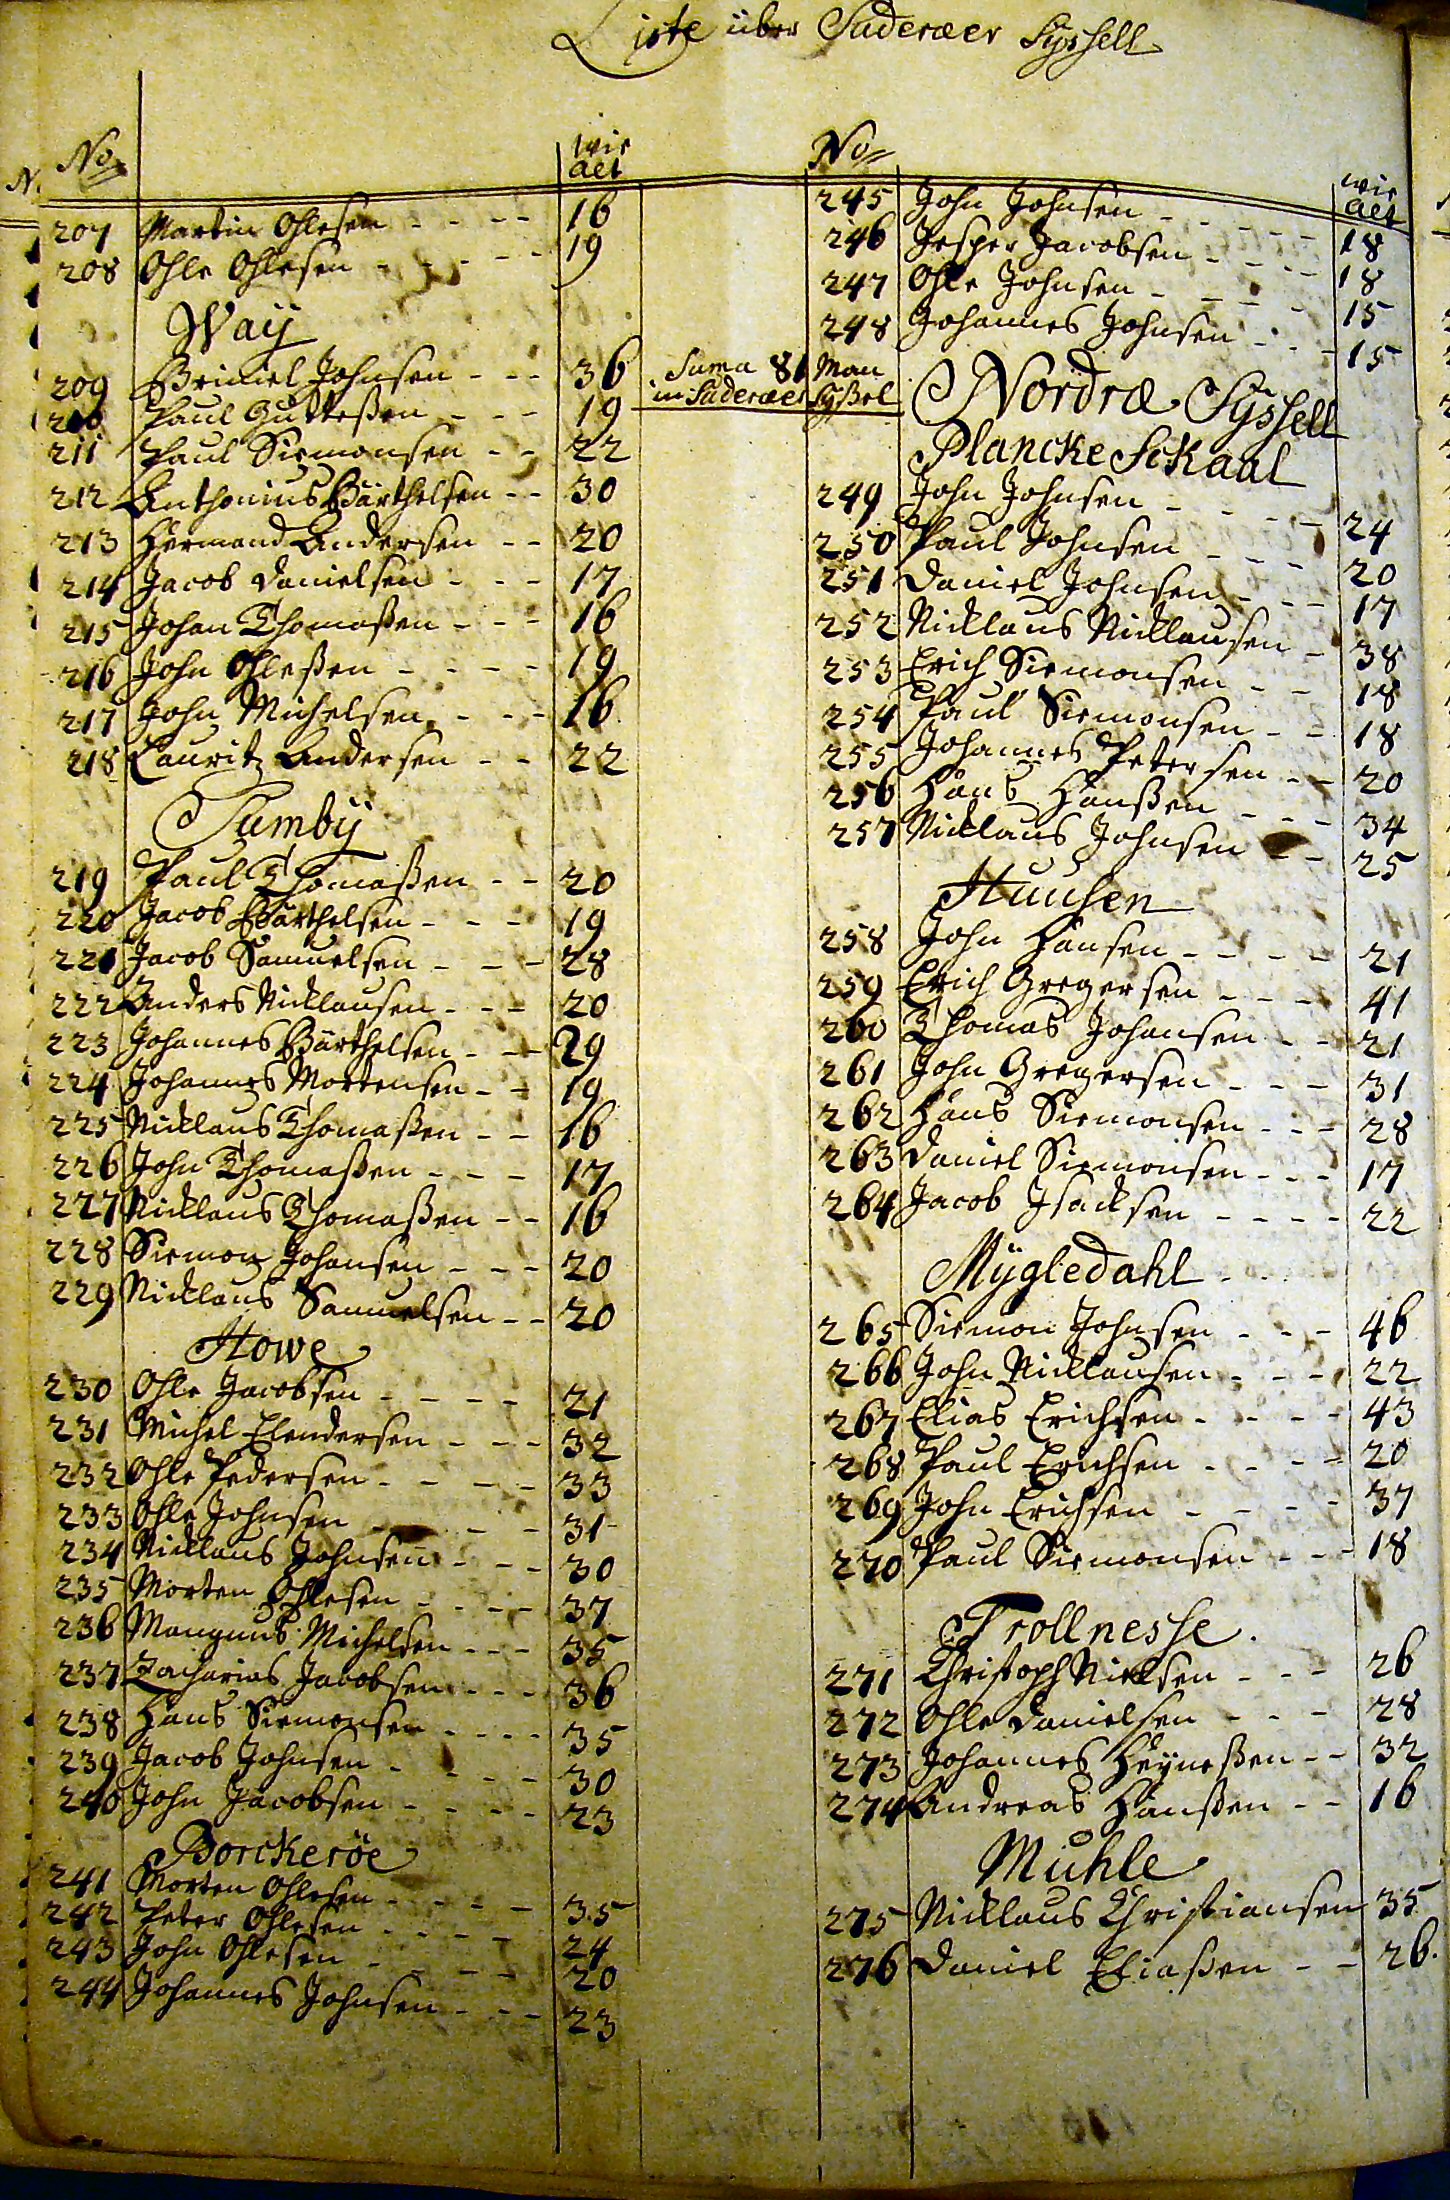 Liste über Suderœer Sÿssell
No wie alt
207 Martin Ohlesen - - - - 16
208 Ohle Ohlesen - - - - 19
Waÿ
209 Brimiel Johnsen - - - 36
210 Paul Gutteßen - - - 19
211 Paul Siemonsen - - 22
212 Anthonius Bärthelsen - - 30
213 Hermand Andersen - - 20
214 Jacob Danielsen - - - 17
215 Johan Thomaßen - - - 16
216 John Ohleßen - - - - 19
217 John Michelsen - - - 16
218 Lauritz Andersen - - 22
Sumbÿ
219 Paul Thomaßen - - 20
220 Jacob Bärthelsen - - - 19
221 Jacob Samuelsen - - - 28
222 Anders Nicklausen - - - 20
223 Johannes Bärthelsen - - 29
224 Johannes Mortensen - - 19
225 Nicklaus Thomaßen - - 16
226 John Thomaßen - - - 17
227 Nicklaus Thomaßen - - 16
228 Siemon Johansen - - - 20
229 Nicklaus Samuelsen - - 20
Howe
230 Ohle Jacobsen - - - - 21
231 Michel Elendersen - - - 32
232 Ohle Pedersen - - - - 33
233 Ohle Johnsen - - - - 31
234 Nicklaus Johnsen - - - 30
235 Morten Ohlesen - - - - 37
236 Mangnus Michelsen - - - 35
237 Zacharias Jacobsen - - - 36
238 Hans Siemonsen - - - - 35
239 Jacob Johnsen - - - - 30
240 John Jacobsen - - - - 23
Borckeröe
241 Morten Ohlesen - - - - 35
242 Peter Ohlesen - - - - 24
243 John Ohlesen - - - - 20
244 Johannes Johnsen - - - 23
No wie alt
245 John Johnsen - - - - - 18
246 Jesper Jacobsen - - - - 18
247 Ohle Johnsen - - - - 15
248 Johannes Johnsen - - - 15
Suma 81 Man
in Suderœer Sÿßel
Nordrœ Sÿssell
Plancke Sckaal
249 John Johnsen - - - - 24
250 Paul Johnsen - - - 20
251 Daniel Johnsen - - - 17
252 Nicklaus Nicklausen - 38
253 Erich Siemonsen - - 18
254 Paul Siemonsen - - 18
255 Johannes Petersen - - 20
256 Hans Hanßen - - - 34
257 Nicklaus Johnsen - - 25
Huusen
258 John Hansen - - - - 21
259 Erich Gregersen - - - 41
260 Thomas Johansen - - 21
261 John Gregersen - - - 31
262 Hans Siemonsen - - - 28
263 Daniel Siemonsen - - - 17
264 Jacob Isacksen - - - - 22
Mÿgledahl
265 Siemon Johnsen - - - 46
266 John Nicklausen - - - 22
267 Elias Erichsen - - - - 43
268 Paul Erichsen - - - - 20
269 John Erichsen - - - - 37
270 Paul Siemonsen - - - 18
Trollnesse.
271 Christoph Nicksen - - - 26
272 Ohle Danielsen - - - 28
273 Johannes Heÿneßen - - 32
274 Andreas Hanßen - - 16
Muhle
275 Nicklaus Christiansen 35
276 Daniel Eliaßen - - 26.